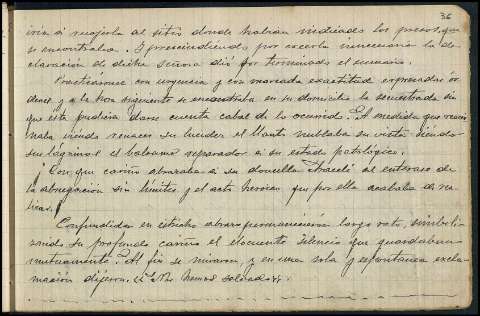 36
á recojerla al sitio donde habian indicado los presos, que
se encontraba. I prescindiendo por creerla innecesaria la de-
claración de dicha señora dió por terminado el sumario.
Practicáronse con urgencia y con marcada exactitud expresadas ór
denes, y á la hora siguiente se encontraba en su domicilio la secuestrada sin
que esta pudiera darse cuenta cabal de lo ocurrido. Á medida que
iendo renacer su lucidez el llanto nublaba su vista siendo
sus lágrimas el bálsamo reparador á su estado patológico.
¡Con que cariño abrazaba á su doncella Araceli al enterarse de
la abnegación sin límites, y el acto heroico que por ella acababa de rea-
lizar!
Confundidas en estrecho abrazo permanecieron largo rato, simboli-
zando su profundo cariño el elocuente silencio que guardaban
mutuamente. Al fin se miraron, y en una sola y espontánea excla-
mación dijeron.